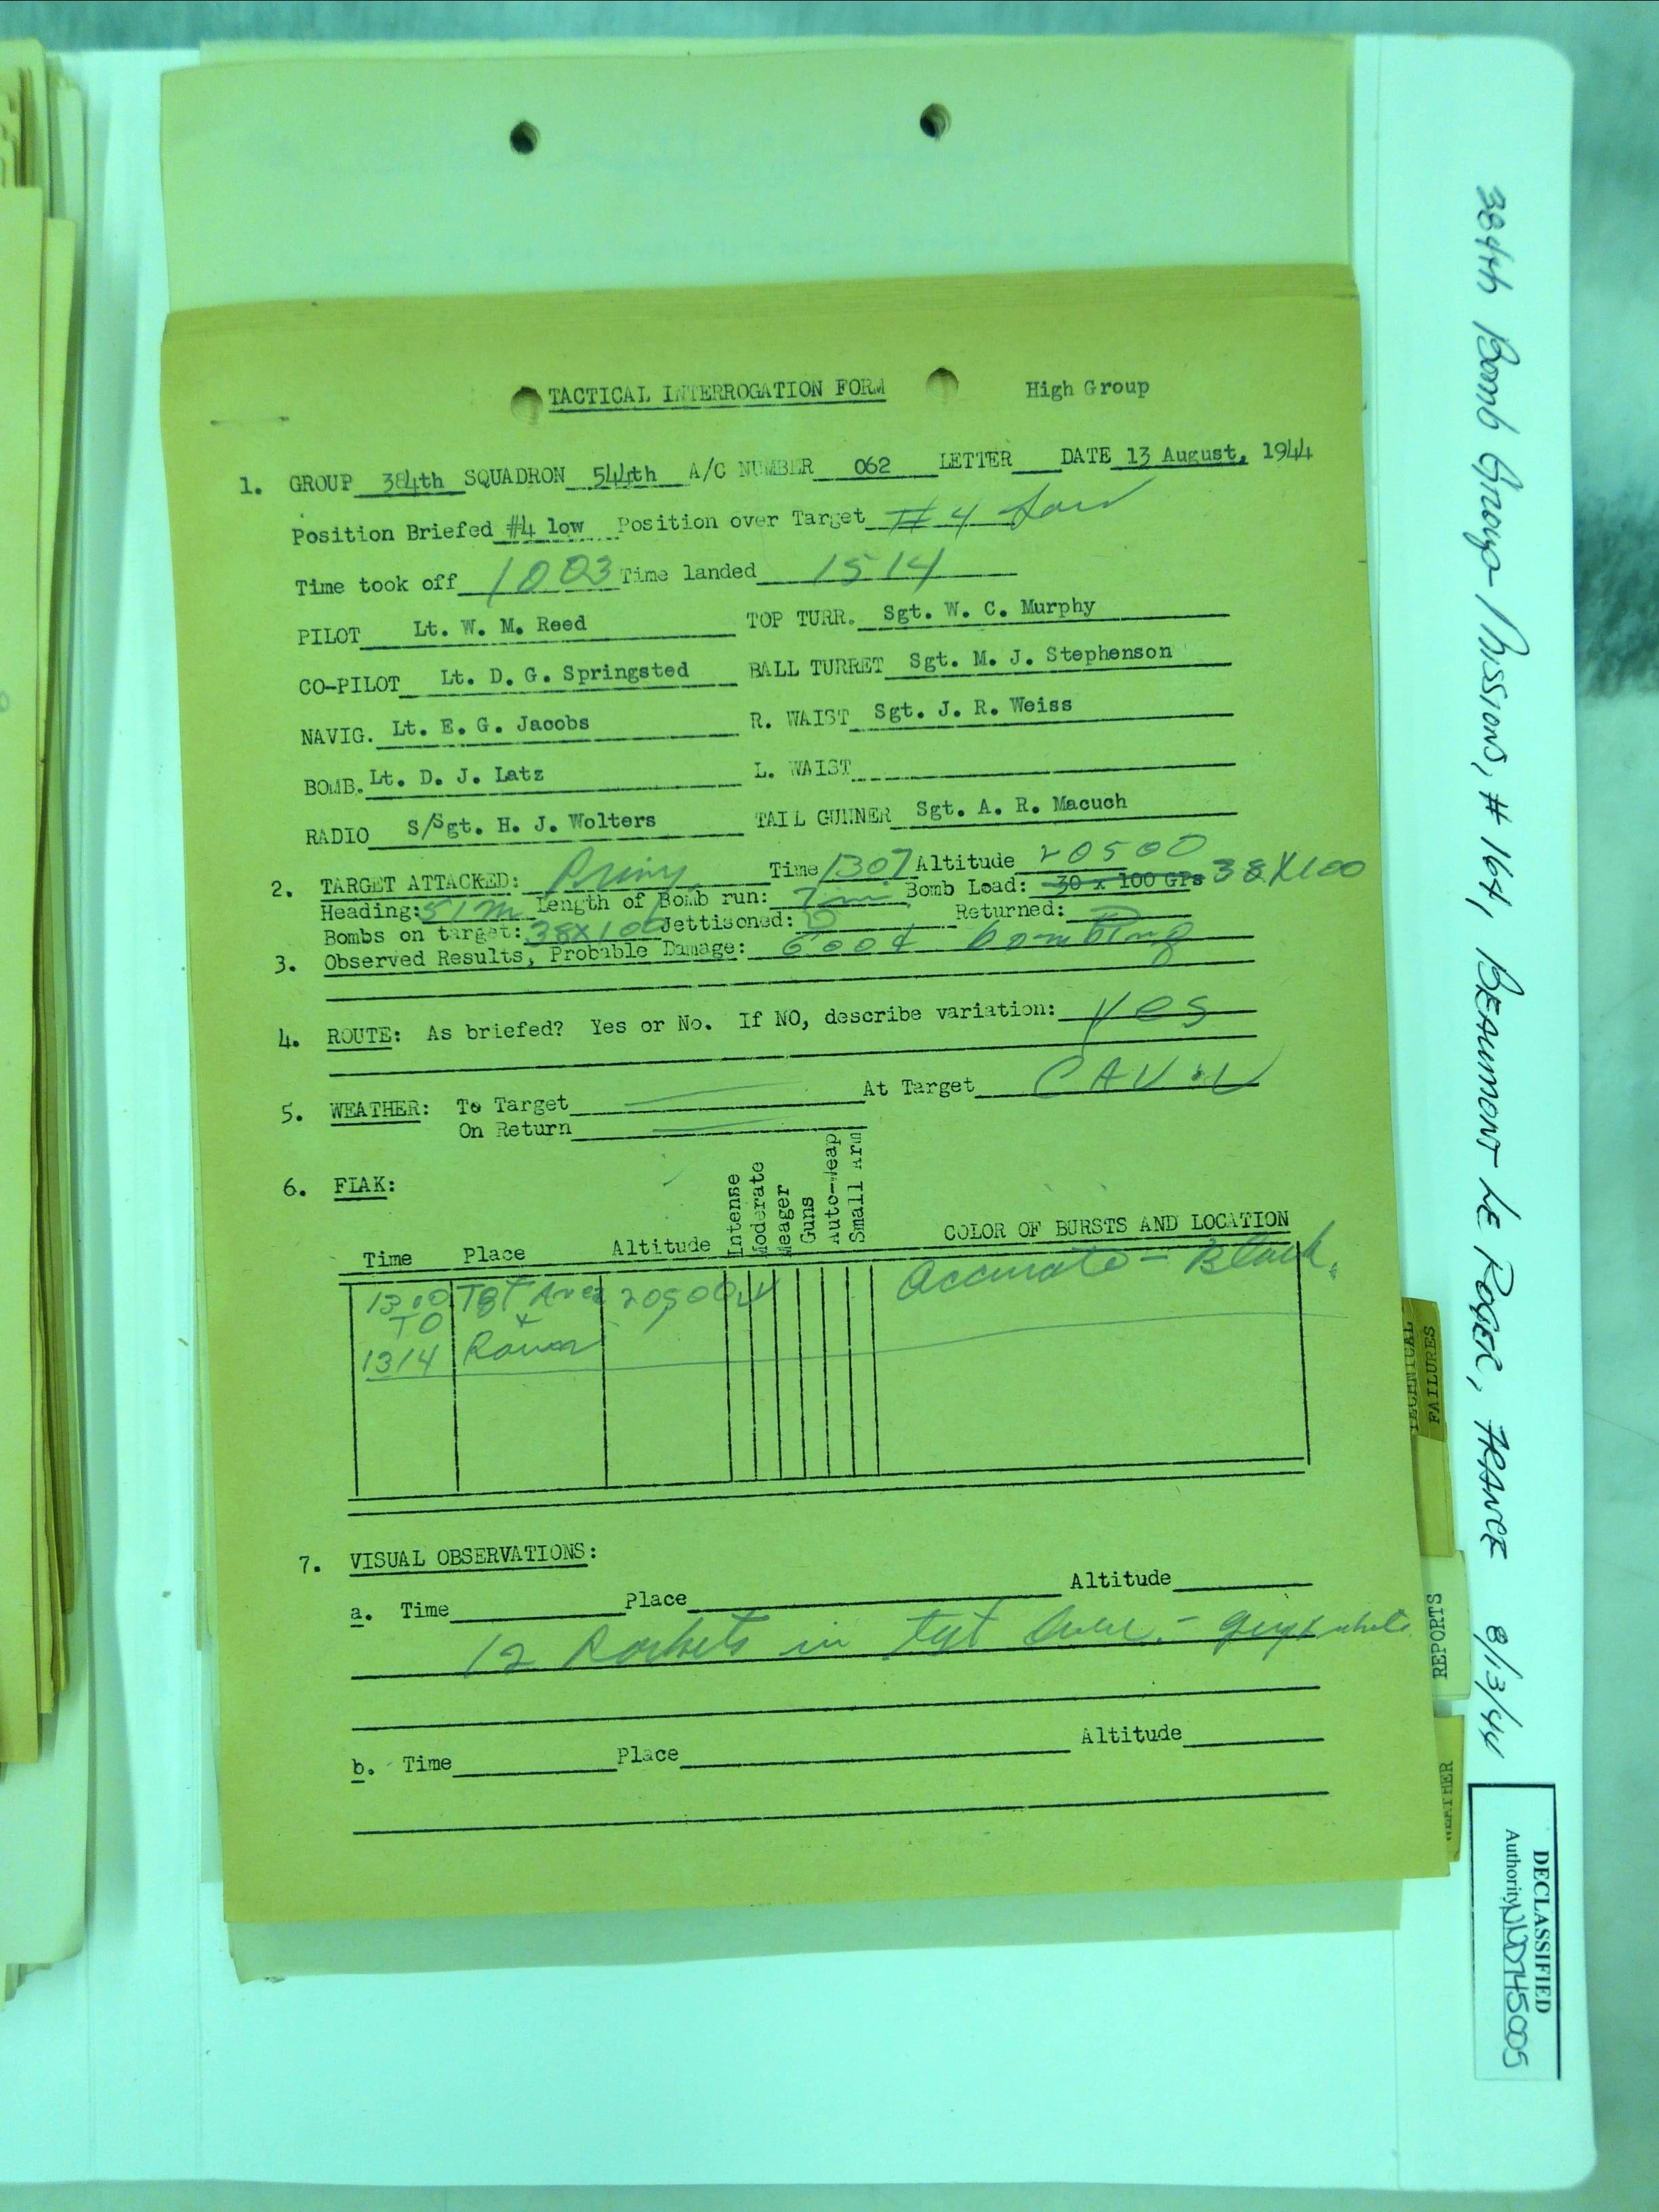 TACTICAL INTERROGATION FORM High Group
1. GROUP 384th SQUADRON 544th A/C NUMBER 062 LETTER DATE 13 August, 1944
Position Briefed #4 low Position over Target #4 low
Time took off 1003 Time landed 1514
PILOT Lt. W. M. Reed TOP TURR. Sgt. W. C. Murphy
CO-PILOT Lt. D. G. Springsted BALL TURRET Sgt. M. J. Stephenson
NAVIG. Lt. E. G. Jacobs R. WAIST Sgt. J. R. Weiss
BOMB. Lt. D. J. Latz L. WAIST
RADIO S/Sgt. H. J. Wolters TAIL GUNNER Sgt. A. R. Macuch
2. TARGET ATTACKED: Time 1307 Altitude 20500
Heading: Length of Bomb run: Bomb Load: 30 x 100 GPs 38X100
Bombs on target: 38X100 Jettisoned: 0 Returned:
3. Observed Results, Probable Damage: Good bombing
4. ROUTE: As briefed? Yes or No. If NO, describe variation: yes
5. WEATHER: To Target At Target CAVU
On Return
6. FLAK:
Time Place Altitude Intense Moderate Meager Guns Auto-Weap Small Arm COLOR OF BURSTS AND LOCATION
1300 Tgt Area 20500 Accurate - Black.
TO +
1314 Rouen
7. VISUAL OBSERVATIONS:
a. Time Place Altitude
12 Rockets in tgt area - grey + white
b. Time Place Altitude
384th Bomb Group - Missions, # 164, BEAUMONT LE ROGER, FRANCE 8/13/44
TECHNICAL
FAILURES
REPORTS
WEATHER
DECLASSIFIED
Authority NND745005